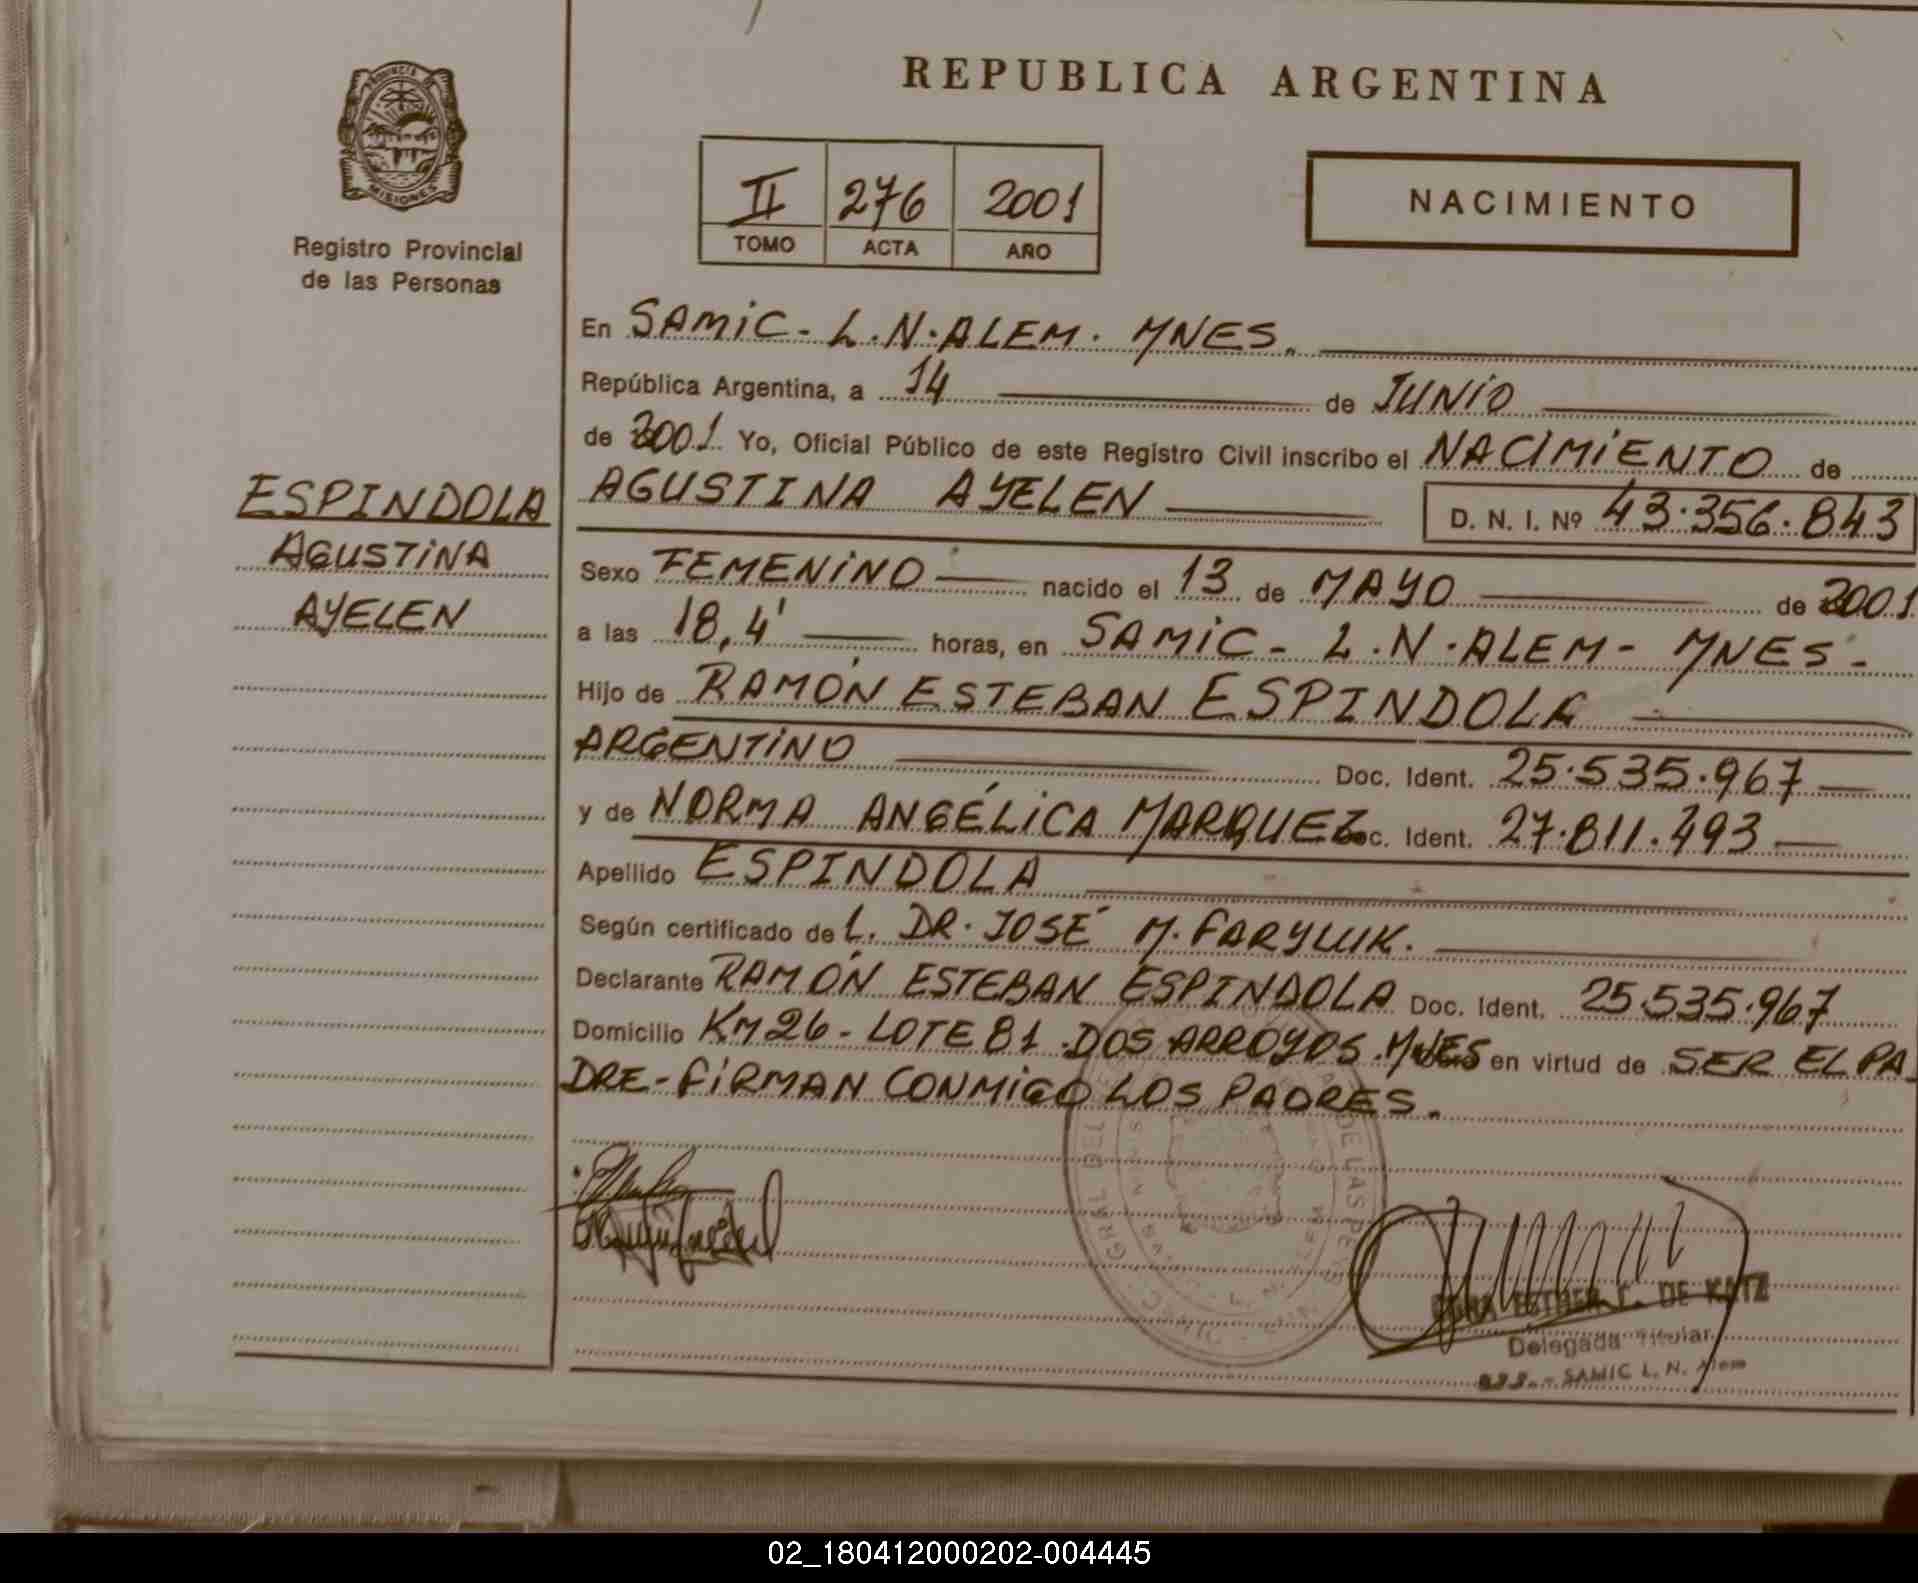 REPUBLICA ARGENTINA
PROVINCIA DE MISIONES
Registro Provincial
de las Personas
II 276 2001
TOMO ACTA AÑO
NACIMIENTO
ESPINDOLA
AGUSTINA
AYELEN
En SAMIC - L.N. ALEM. MNES.
República Argentina, a 14 de JUNIO
de 2001 Yo, Oficial Público de este Registro Civil inscribo el NACIMIENTO de
AGUSTINA AYELEN D. N. I. Nº 43.356.843
Sexo FEMENINO nacido el 13 de MAYO de 2001
a las 18,4' horas, en SAMIC - L.N. ALEM - MNES -
Hijo de RAMÓN ESTEBAN ESPINDOLA
ARGENTINO Doc. Ident. 25.535.967
y de NORMA ANGÉLICA MARQUEZ Doc. Ident. 27.811.493
Apellido ESPINDOLA
Según certificado de L. DR. JOSÉ M. FARYLUIK.
Declarante RAMÓN ESTEBAN ESPINDOLA Doc. Ident. 25.535.967
Domicilio KM 26 - LOTE 81 . DOS ARROYOS . MNES en virtud de SER EL PA
DRE - FIRMAN CONMIGO LOS PADRES.
ESTHER DE KATZ
Delegada Titular
SAMIC L. N. Alem
02_180412000202-004445